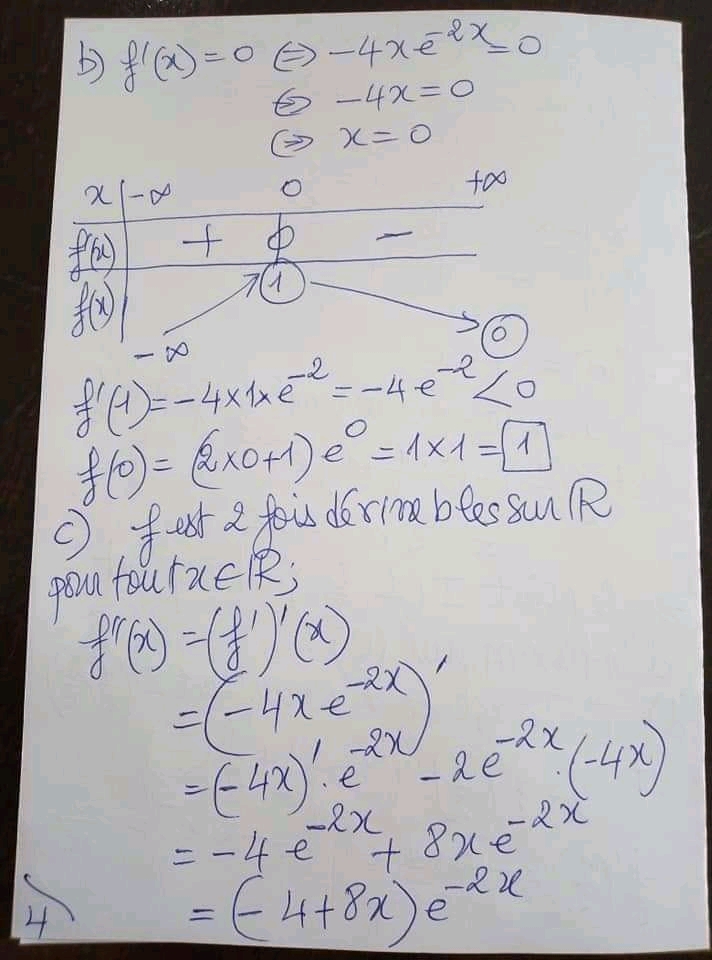 b) f'(x) = 0 ⇔ -4xe^{-2x} = 0
⇔ -4x = 0
⇔ x = 0
x | -∞ 0 +∞
f'(x) + 0 -
f(x) 1
0
-∞
f'(1) = -4×1×e^{-2} = -4e^{-2} < 0
f(0) = (2×0+1)e^0 = 1×1 = 1
c) f est 2 fois dérivables sur ℝ
pour tout x∈ℝ;
f''(x) = (f')'(x)
= (-4xe^{-2x})'
= (-4x)'·e^{-2x} -2e^{-2x}·(-4x)
= -4e^{-2x} + 8xe^{-2x}
= (-4+8x)e^{-2x}
4